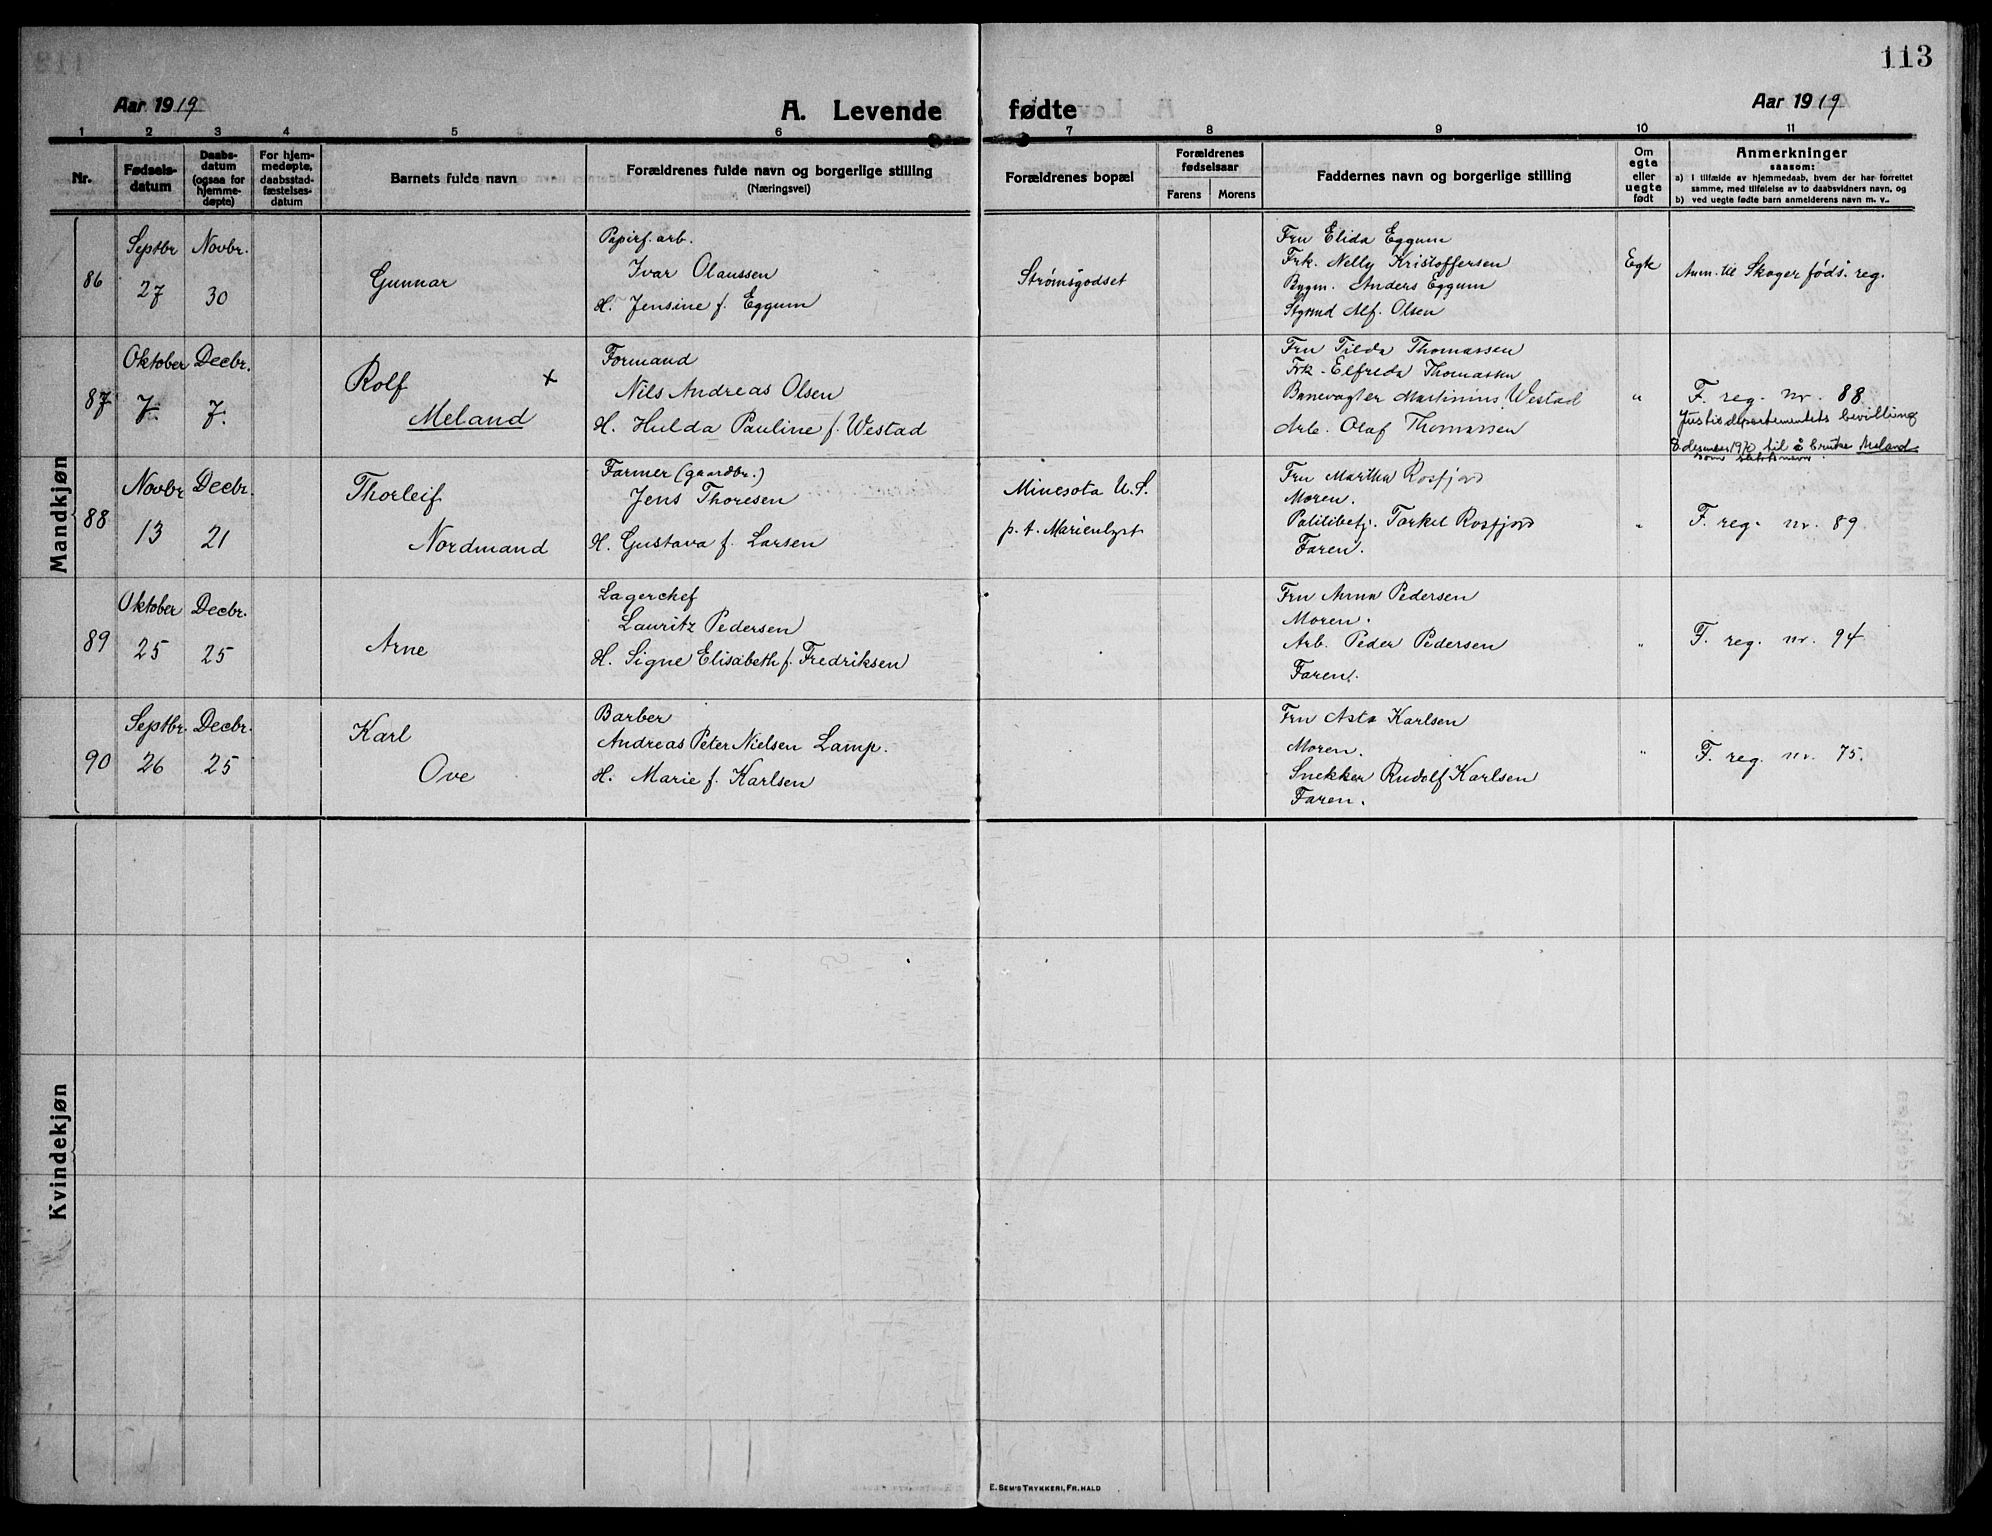 113
Aar 1919
A. Levende
fødte
Aar 1919
1 2 3 4 5 6 7 8 9 10 11
Nr.
Fødsels-
datum
Daabs-
datum
(ogsaa for
hjemme-
døpte)
For hjem-
medøpte,
daabsstad-
fæstelses-
datum
Barnets fulde navn
Forældrenes fulde navn og borgerlige stilling
(Næringsvei)
Forældrenes bopæl
Forældrenes
fødselsaar
Farens Morens
Faddernes navn og borgerlige stilling
Om
egte
eller
uegte
født
Anmerkninger
saasom:
a) I tilfælde av hjemmedaab, hvem der har forrettet
samme, med tilføielse av to daabsvidners navn, og
b) ved uegte fødte barn anmelderens navn m. v..
Mandkjøn
86
Septbr
27
Novbr.
30
Gunnar
Papirf. arb.
Ivar Olaussen
H. Jensine f. Eggum
Strømsgodset
Fru Elida Eggum
Frk. Nelly Kristoffersen
Bygm. Anders Eggum
Styrmd Alf. Olsen
Egte
Anm. til Skoger føds. reg.
87
Oktober
7.
Decbr.
7.
Rolf
Meland
+
Formand
Nils Andreas Olsen
H. Hulda Pauline f. Westad
Fru Tilda Thomassen
Frk. Elfreda Thomassen
Banevagter Martinius Westad
Arb. Olaf Thomassen
"
F. reg. nr. 88
Justisdepartementets bevilling
til å bruke Meland
som slektsnavn.
88
Novbr
13
Decbr.
21
Thorleif
Nordmand
Farmer (gaardbr.)
Jens Thoresen
H. Gustava f. Larsen
Minesota U.S.
p.t. Marienlyst
Fru Martha Rosfjord
Moren.
Politibetj. Torkel Rosfjord
Faren.
"
F. reg. nr. 89
89
Oktober
25
Decbr.
25
Arne
Lagerchef
Lauritz Pedersen
H. Signe Elisabeth f. Fredriksen
Fru Anna Pedersen
Moren.
Arb. Peder Pedersen
Faren.
"
F. reg. nr. 94
90
Septbr.
26
Decbr.
25
Karl
Ove
Barber
Andreas Peter Nielsen Lamp.
H. Marie f. Karlsen
Fru Asta Karlsen
Moren.
Snekker Rudolf Karlsen
Faren.
"
F. reg. nr. 75.
Kvindekjøn
E. SEM'S TRYKKERI, FR.HALD